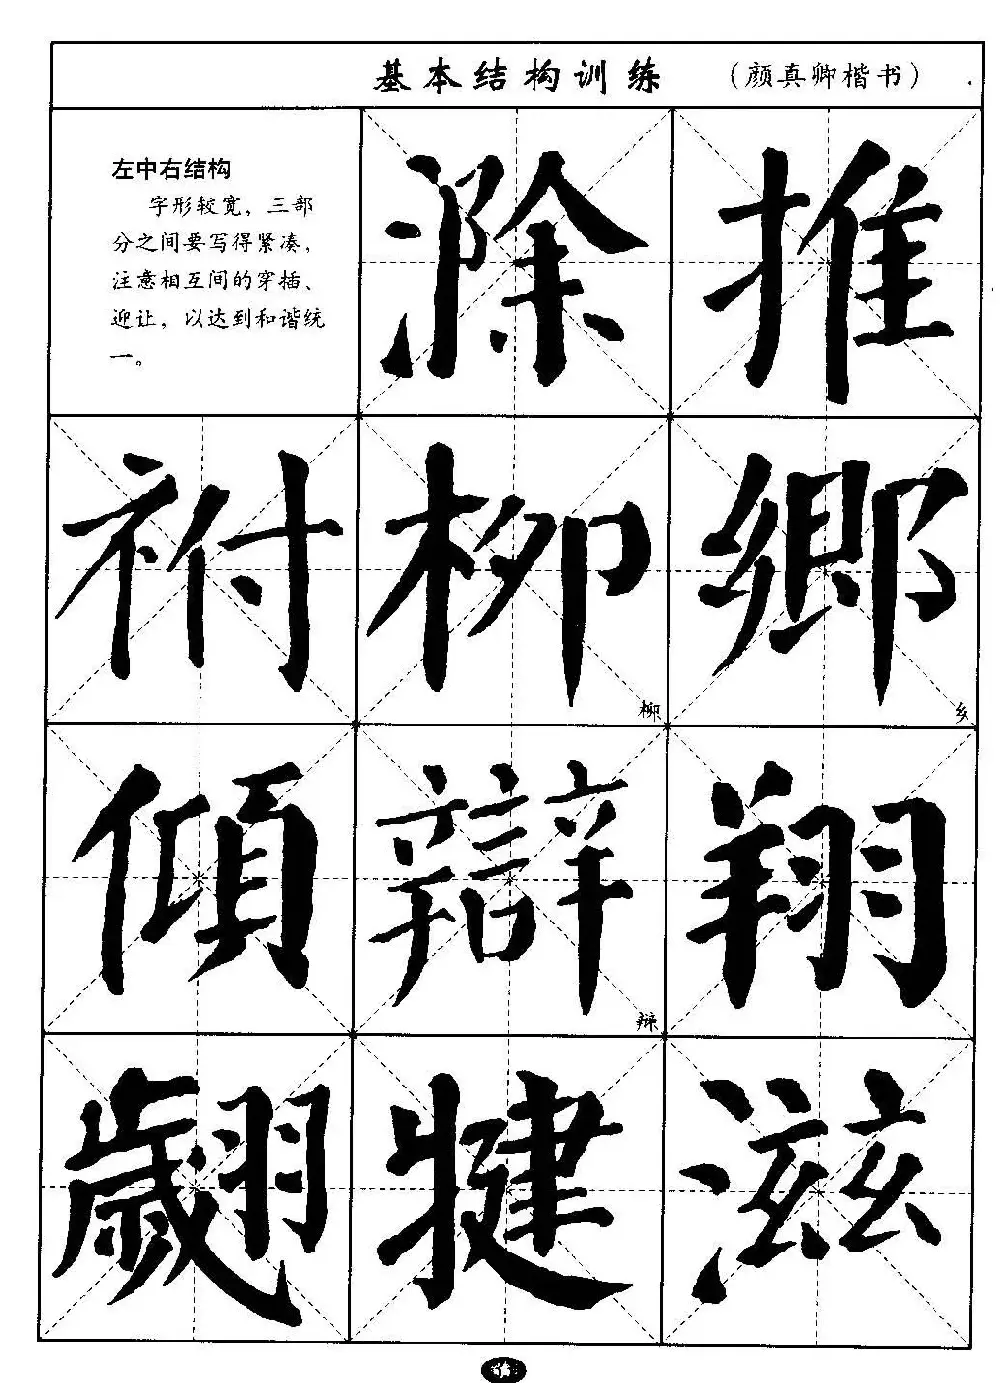 基本结构训练 （颜真卿楷书）
左中右结构
字形较宽，三部
分之间要写得紧凑，
注意相互间的穿插、
迎让，以达到和谐统
一。
滁 推
祔 柳 鄉
柳 乡
傾 辯 翔
辩
翽 犍 滋